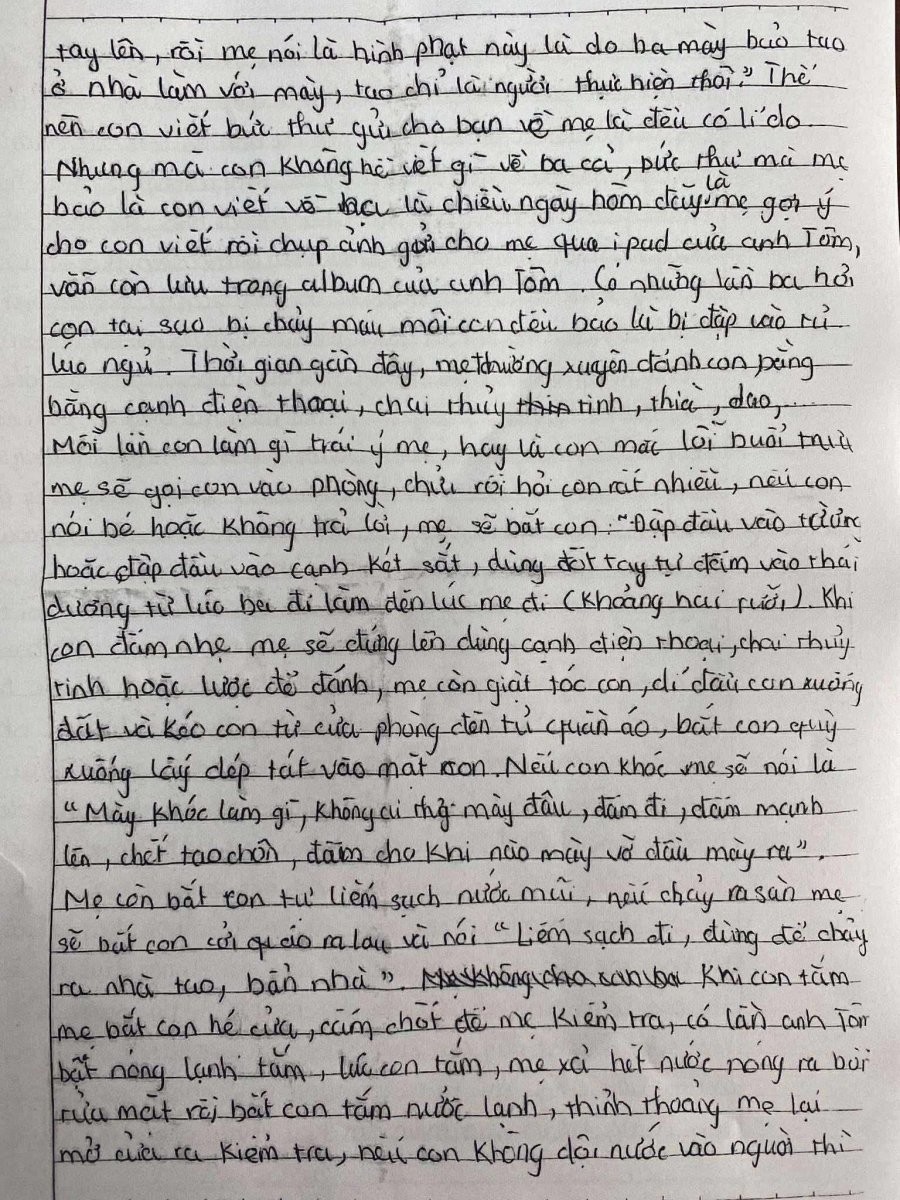 tay lên, rồi mẹ nói là hình phạt này là do ba mày bảo tao
ở nhà làm với mày, tao chỉ là người thực hiện thôi." Thế
nên con viết bức thư gửi cho bạn về mẹ là đều có lí do.
Nhưng mà con không hề viết gì về ba cả, bức thư mà mẹ
bảo là con viết về là chiều ngày hôm đấy là mẹ gợi ý
cho con viết rồi chụp ảnh gửi cho mẹ qua ipad của anh Tôm,
vẫn còn lưu trong album của anh Tôm. Có những lần ba hỏi
con tại sao bị chảy máu môi con đều bảo là bị đập vào tủ
lúc ngủ. Thời gian gần đây, mẹ thường xuyên đánh con bằng
bằng cạnh điện thoại, chai thủy tinh, thìa, dao,
Mỗi lần con làm gì trái ý mẹ, hay là con mắc lỗi buổi trưa
mẹ sẽ gọi con vào phòng, chửi rồi hỏi con rất nhiều, nếu con
nói bé hoặc không trả lời, mẹ sẽ bắt con: "Đập đầu vào tường
hoặc đập đầu vào cạnh két sắt, dùng đốt tay tự đấm vào thái
dương từ lúc ba đi làm đến lúc mẹ đi (khoảng hai rưỡi). Khi
con đấm nhẹ mẹ sẽ đứng lên dùng cạnh điện thoại, chai thủy
tinh hoặc lược để đánh, mẹ còn giật tóc con, dí đầu con xuống
đất và kéo con từ cửa phòng đến tủ quần áo, bắt con quỳ
xuống lấy dép tát vào mặt con. Nếu con khóc mẹ sẽ nói là
"Mày khóc làm gì, không ai thở mày đâu, đấm đi, đấm mạnh
lên, chết tao chôn, đấm cho khi nào mày vỡ đầu mày ra".
Mẹ còn bắt con tự liếm sạch nước mũi, nếu chảy ra sàn mẹ
sẽ bắt con cởi quần áo ra lau và nói "Liếm sạch đi, đừng để chảy
ra nhà tao, bẩn nhà". Khi con tắm
mẹ bắt con hé cửa, cấm chốt để mẹ kiểm tra, có lần anh Tôm
bật nóng lạnh tắm, lúc con tắm, mẹ xả hết nước nóng ra bồn
rửa mặt rồi bắt con tắm nước lạnh, thỉnh thoảng mẹ lại
mở cửa ra kiểm tra, nếu con không dội nước vào người thì